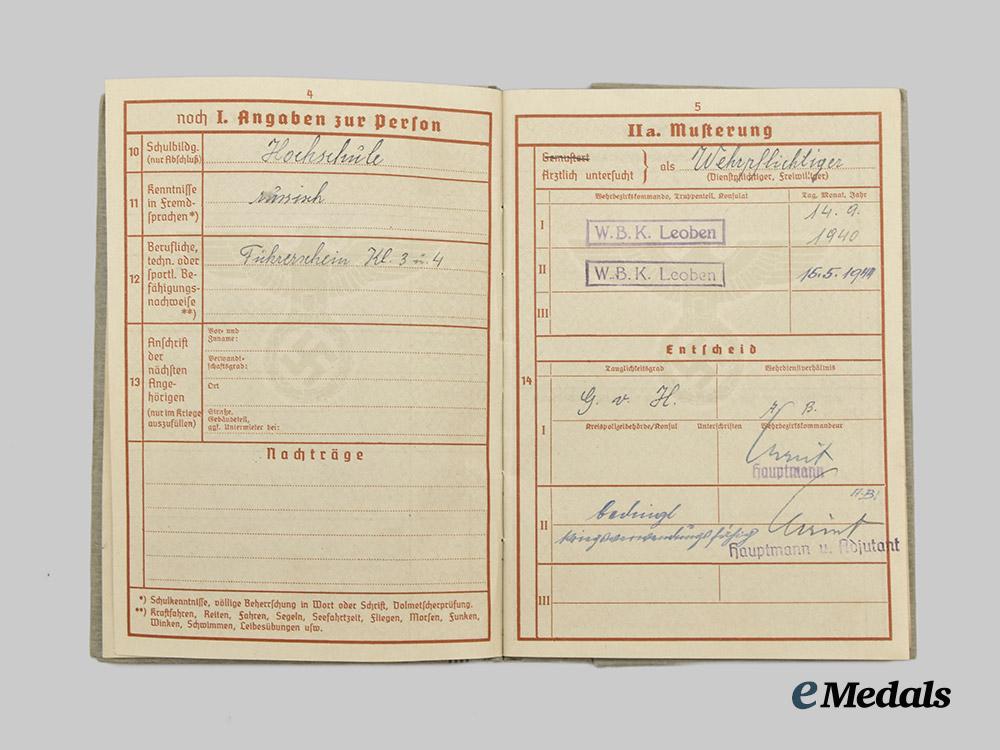 4
noch I. Angaben zur Person
10 Schulbildg. (nur Abschluß)
Hochschule
11 Kenntnisse in Fremd-
sprachen*)
russisch
12 Berufliche,
techn. oder
sportl. Be-
fähigungs-
nachweise
**)
Führerschein Kl. 3 u. 4
13 Anschrift
der
nächsten
Ange-
hörigen
(nur im Kriege
auszufüllen)
Vor- und
Zuname:
Verwandt-
schaftsgrad:
Ort
Straße,
Gebäudeteil,
ggf. Untermieter bei:
Nachträge
*) Schulkenntnisse, völlige Beherrschung in Wort oder Schrift, Dolmetscherprüfung.
**) Kraftfahren, Reiten, Fahren, Segeln, Seefahrtzeit, Fliegen, Morsen, Funken,
Winken, Schwimmen, Leibesübungen usw.
5
IIa. Musterung
Gemustert
Ärztlich untersucht } als Wehrpflichtiger
(Dienstpflichtiger, Freiwilliger)
Wehrbezirkskommando, Truppenteil, Konsulat
Tag, Monat, Jahr
I W.B.K. Leoben 14. 9.
1940
II W.B.K. Leoben 15.5.1941
III
Entscheid
14
Tauglichkeitsgrad
Wehrdienstverhältnis
I G. v. H.
B.
Kreispolizeibehörde/Konsul Unterschriften Wehrbezirkskommandeur
Hauptmann
II bedingt
kriegsverwendungsfähig
Hauptmann u. Adjutant
III
eMedals